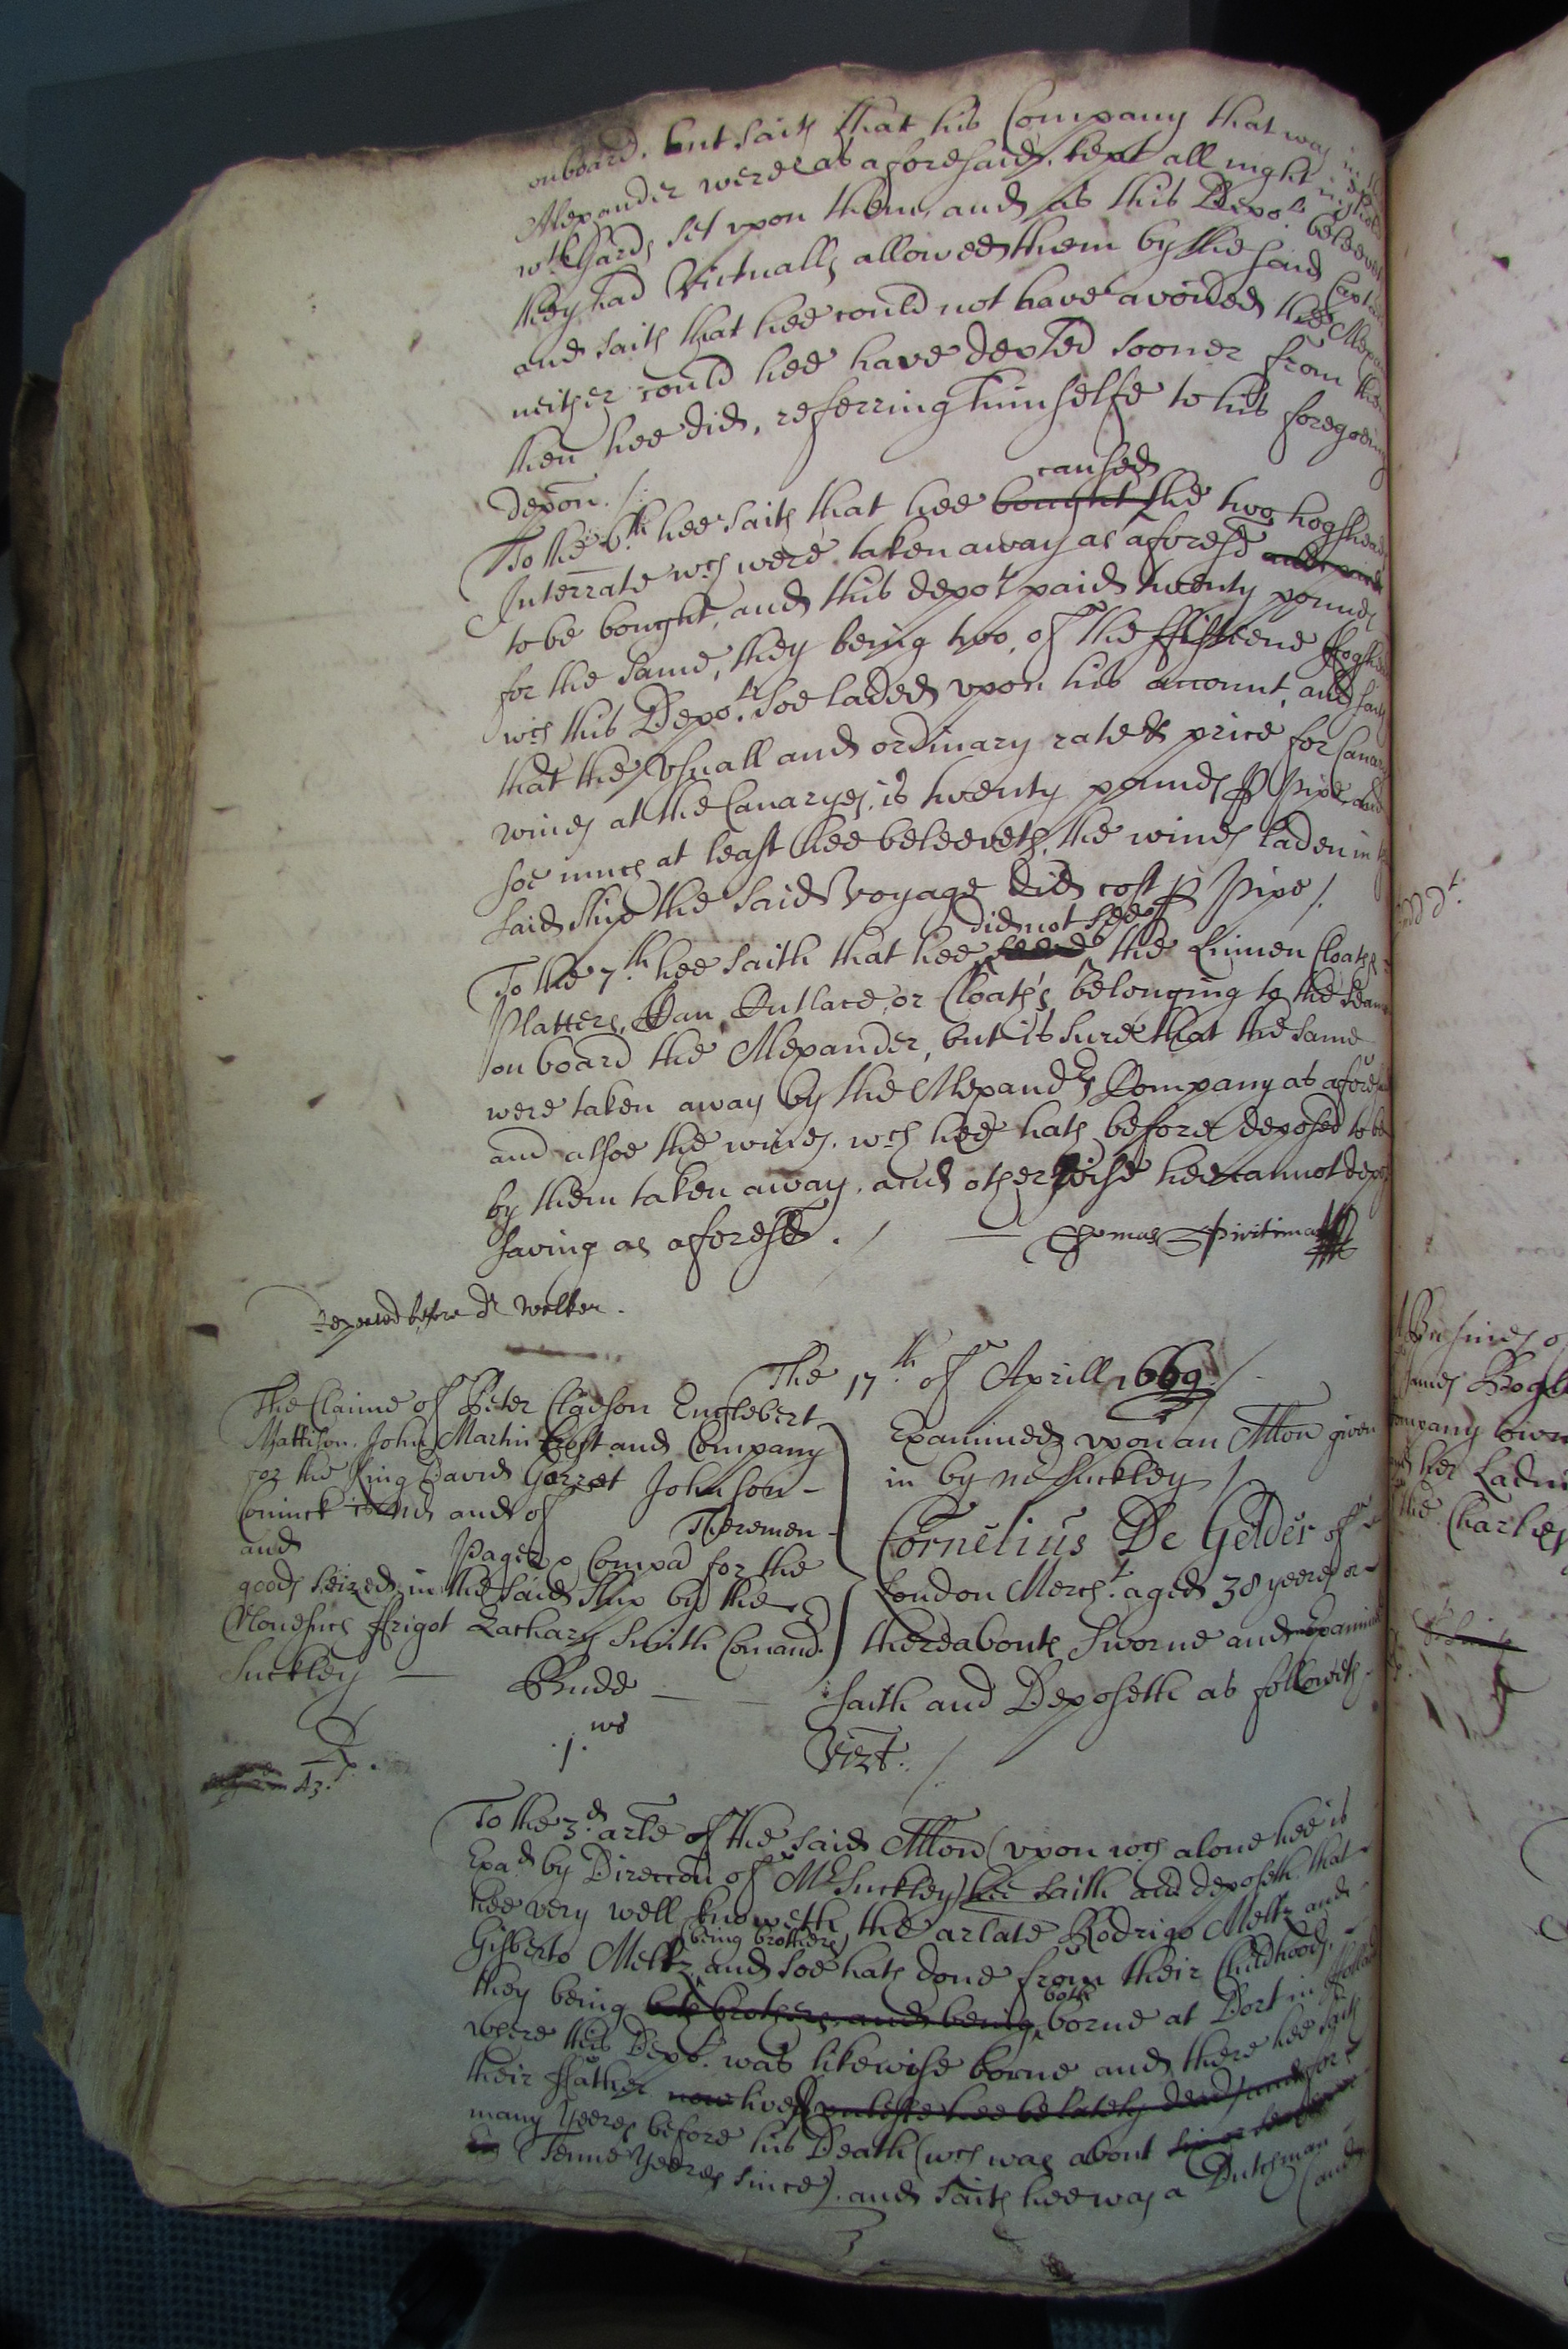 onboard. but saith that his Company that was in
Alexander were as aforesaid, kept all night in
wth Gards set upon them, and as this Depot. beleeves
they had Victualls allowed them by the said Capta
and saith that hee could not have avoided the Alexa
neither could hee have depted sooner from them
then hee did, referring himselfe to his foregoeing
depon. /
To the 6th hee saith that hee bought caused the two hogsheads
Interrate wch were taken away as aforesd
to be bought, and this depot paid twenty pounds
for the same, they being two, of the ffifteene Hogshea
wch this Depot. soe laded upon his account, and saith
that the usuall and ordinary rate & price for Canary
wines at the Canaryes, is twenty pounds p Pipe, and
soe much at least hee beleeveth, the wines laden in
said ship the said Voyage did cost p Pipe /.
To the 7th hee saith that hee did not see the Linnen Cloathes
Platters, Pan, Cutlace, or Cloathes belonging to the Seam
on board the Alexander, but is sure that the same
were taken away by the Alexandrs Company as aforesd
and alsoe the wines, wch hee hath before deposed to be
by them taken away, and otherwise hee cannot depo
saving as aforesd. /
Thomas
Repeated before Dr Walker.
The 17th of Aprill 1669 /
The Claime of Peter Claeson Englebert
Mattison, John Martin and Company
for the King David Gerret Johnson
Coninck and of
and Pagez & Compa for the
goods seized in the said Ship by the
Nonesuch ffrigot Zachary Smith Comandr.
Suckley — Budd —
Examined upon an Allon given
in by mr Suckley /
Cornelius De Gelder of
London Mercht. aged 38 yeeres or
thereabouts Sworne and Examined
saith and Deposeth as followeth
.1. ws
Vizt. /
To the 3d arle of the said Allon (upon wch alone hee is
Exad by Direccon of Mr Suckley) hee saith and deposeth that
hee very well knoweth the arlate Rodrigo Meltz and
Gisberto Meltz (being brothers) and soe hath done from their Childhoods,
they being both brothers, and being both borne at Dort in Holland
where this Depot. was likewise borne and there hee saith
their ffather now lived unlesse hee be lately dead, and for
many yeeres before his Death (wch was about
Tenne yeeres since). and saith hee was a Dutchman
(and